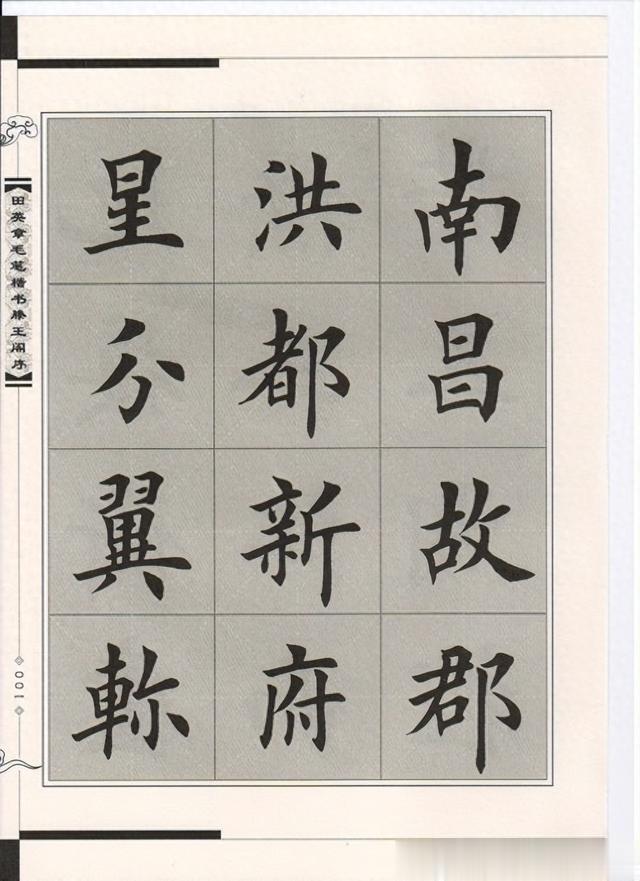 南昌故郡
洪都新府
星分翼軫
田英章毛笔楷书滕王阁序
001